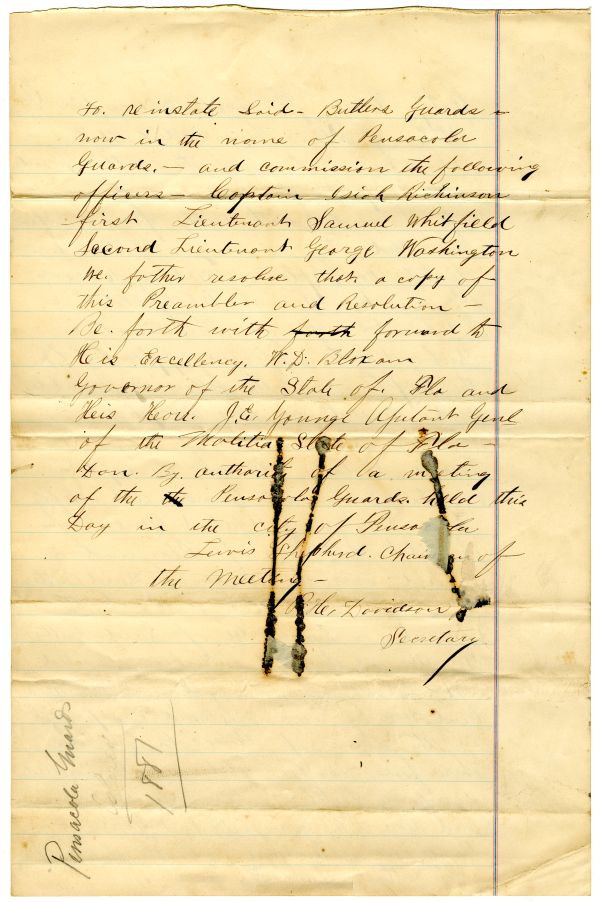 to. reinstate Said - Butlers Guards -
now in the name of Pensacola
Guards. - and commission the following
officers - Captain Isiah Richinson
first Lieutenant Samuel Whitfield
Second Lieutenant George Washington
we. father resolve that a copy of
this Preambler and Resolution -
Be. forth with forth forward to
He is Excellency. W. D. Bloxam
Governor of the State of. Fla and
Heis Hon. J. E. Younge Ajutant Genl
of the Malitia State of Fla -
Don. By. authority of a meeting
of the th Pensacola Guards. held this
Day in the city of Pensacola
Lewis Shepherd. Chairman of
the Meeting -
Davidson
Secretary
Pensacola Guards
1887